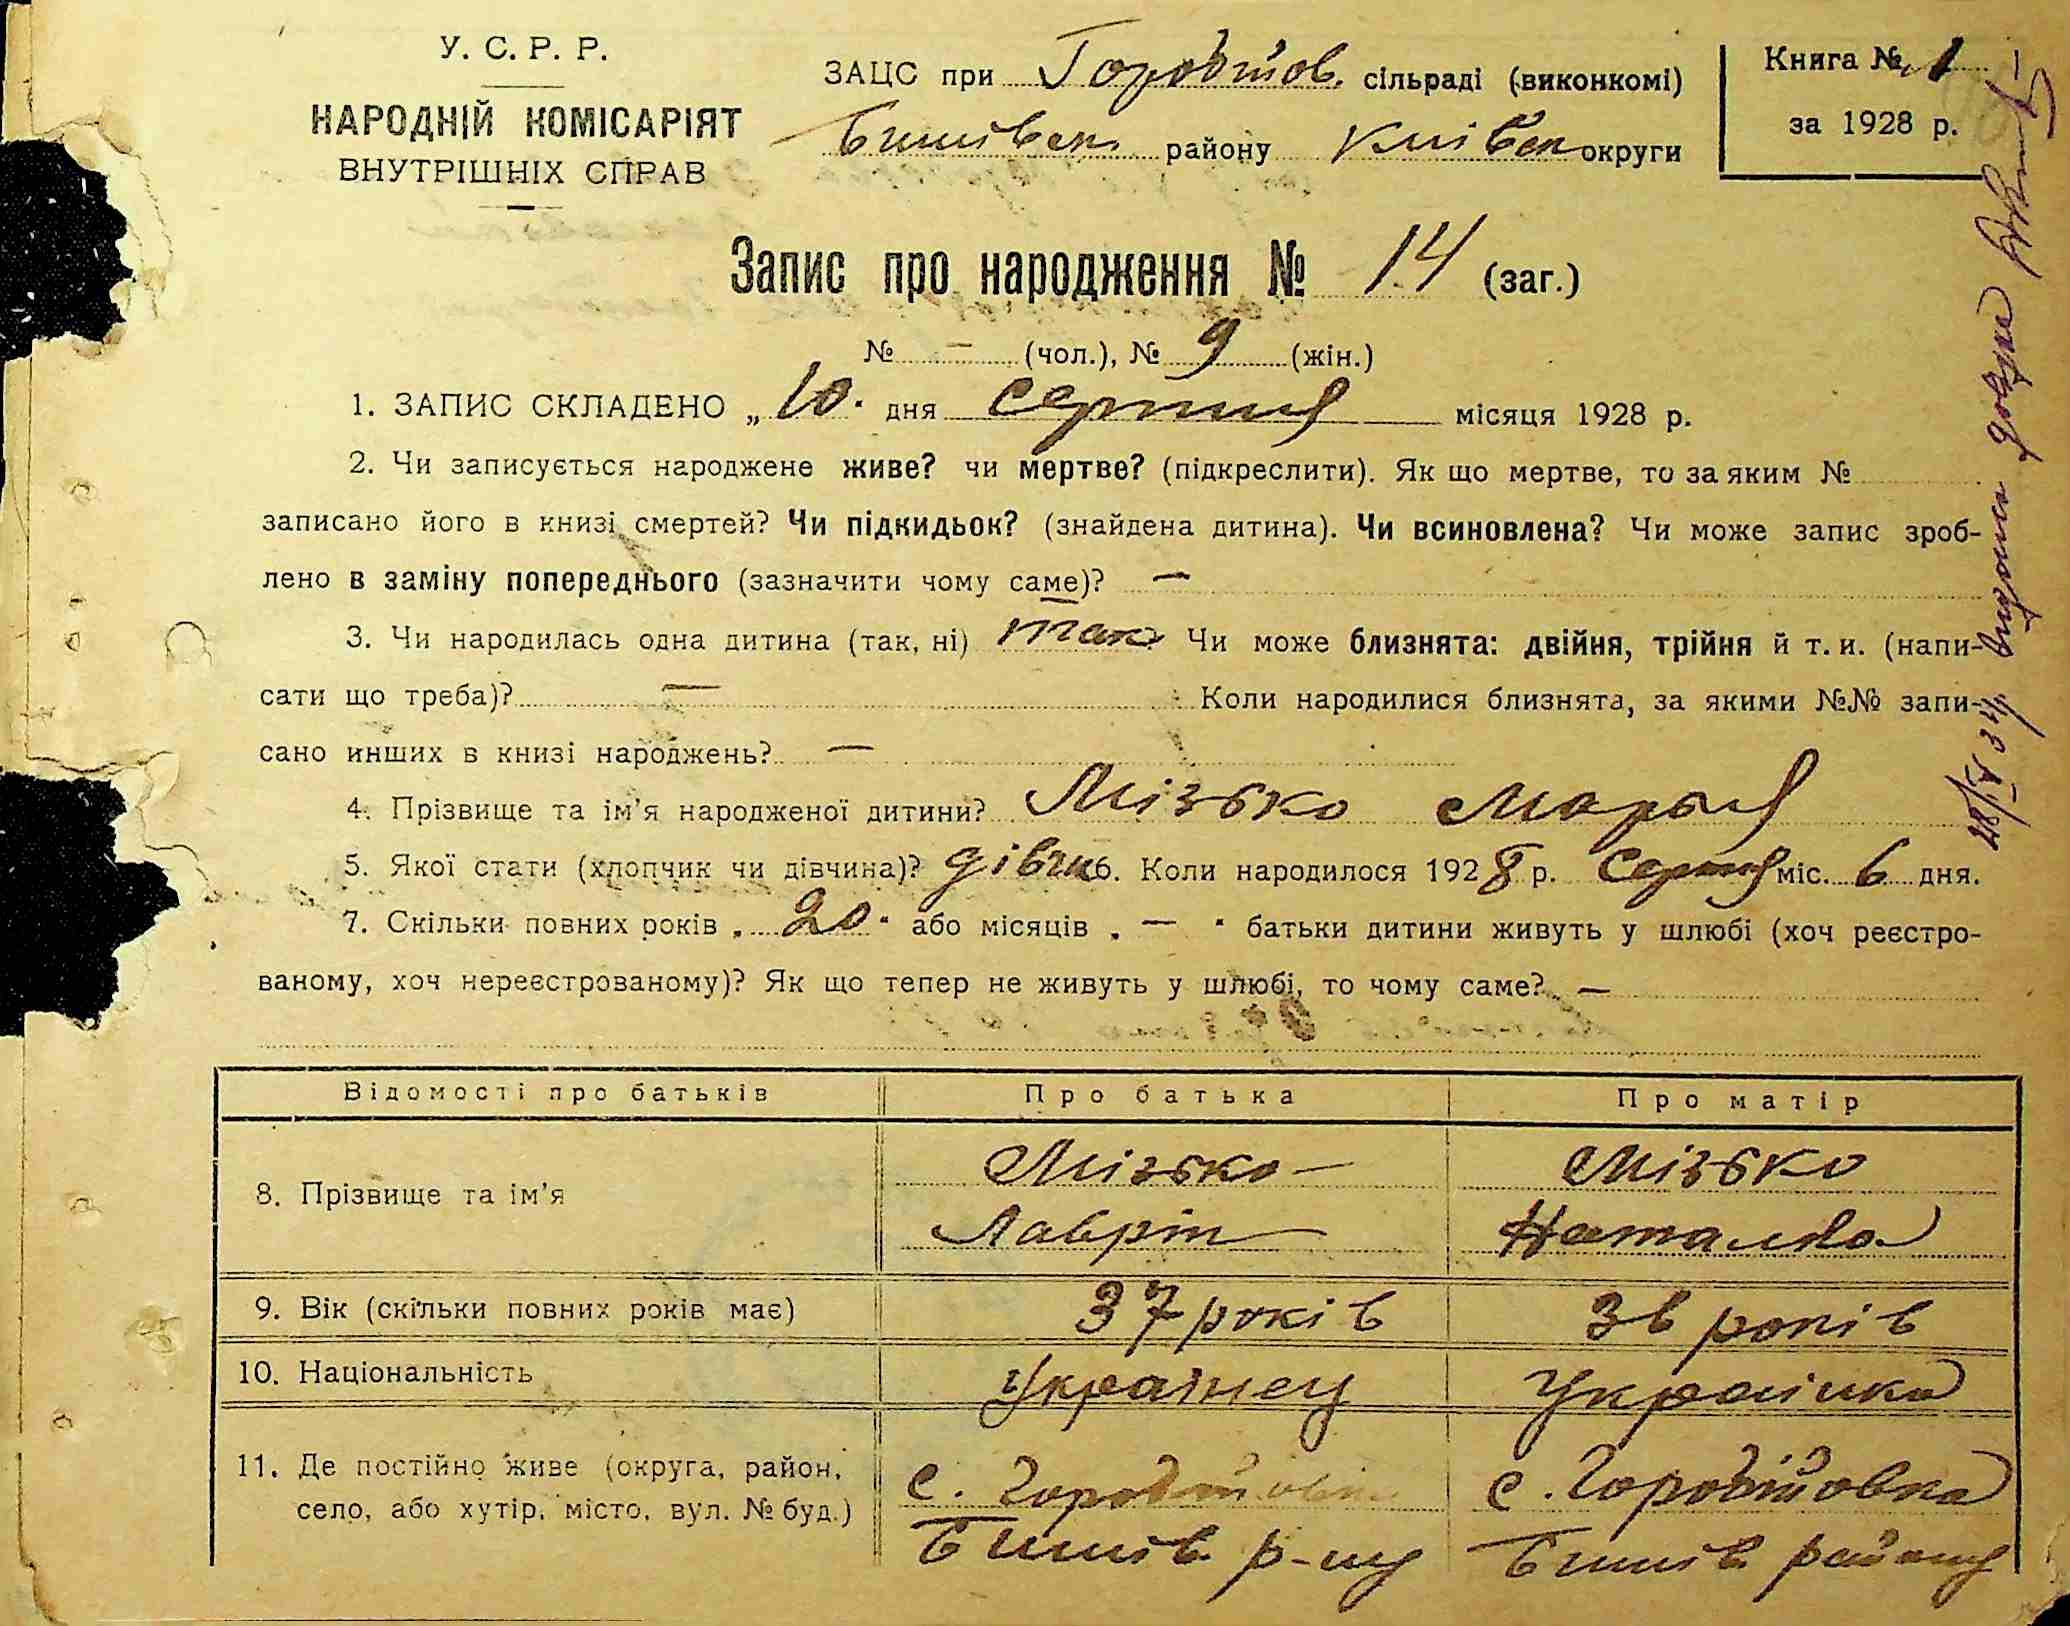 У. С. Р. Р.
НАРОДНІЙ КОМІСАРІЯТ
ВНУТРІШНІХ СПРАВ
ЗАЦС при Городітов. сільраді (виконкомі)
Бишівськ району Київськ округи
Книга № 1
за 1928 р.
Запис про народження № 14 (заг.)
№ — (чол.), № 9 (жін.)
1. ЗАПИС СКЛАДЕНО „ 10 " дня серпня місяця 1928 р.
2. Чи записується народжене живе? чи мертве? (підкреслити). Як що мертве, то за яким №
записано його в книзі смертей? Чи підкидьок? (знайдена дитина). Чи всиновлена? Чи може запис зроб-
лено в заміну попереднього (зазначити чому саме)? —
3. Чи народилась одна дитина (так, ні) так Чи може близнята: двійня, трійня й т. и. (напи-
сати що треба)? — Коли народилися близнята, за якими №№ запи-
сано инших в книзі народжень? —
4. Прізвище та ім'я народженої дитини? Мізько Марья
5. Якої стати (хлопчик чи дівчина)? дівчи 6. Коли народилося 1928 р. серпня міс. 6 дня.
7. Скільки повних років „ 20 " або місяців „ — " батьки дитини живуть у шлюбі (хоч реєстро-
ваному, хоч нереєстрованому)? Як що тепер не живуть у шлюбі, то чому саме? —
Відомості про батьків Про батька Про матір
8. Прізвище та ім'я Мізько Мізько
Лаврін Наталка
9. Вік (скільки повних років має) 37 років 38 років
10. Національність Українец Українка
11. Де постійно живе (округа, район, с. Городітовка с. Городітовка
село, або хутір, місто, вул. № буд.) Бишів. р-ну Бишів району